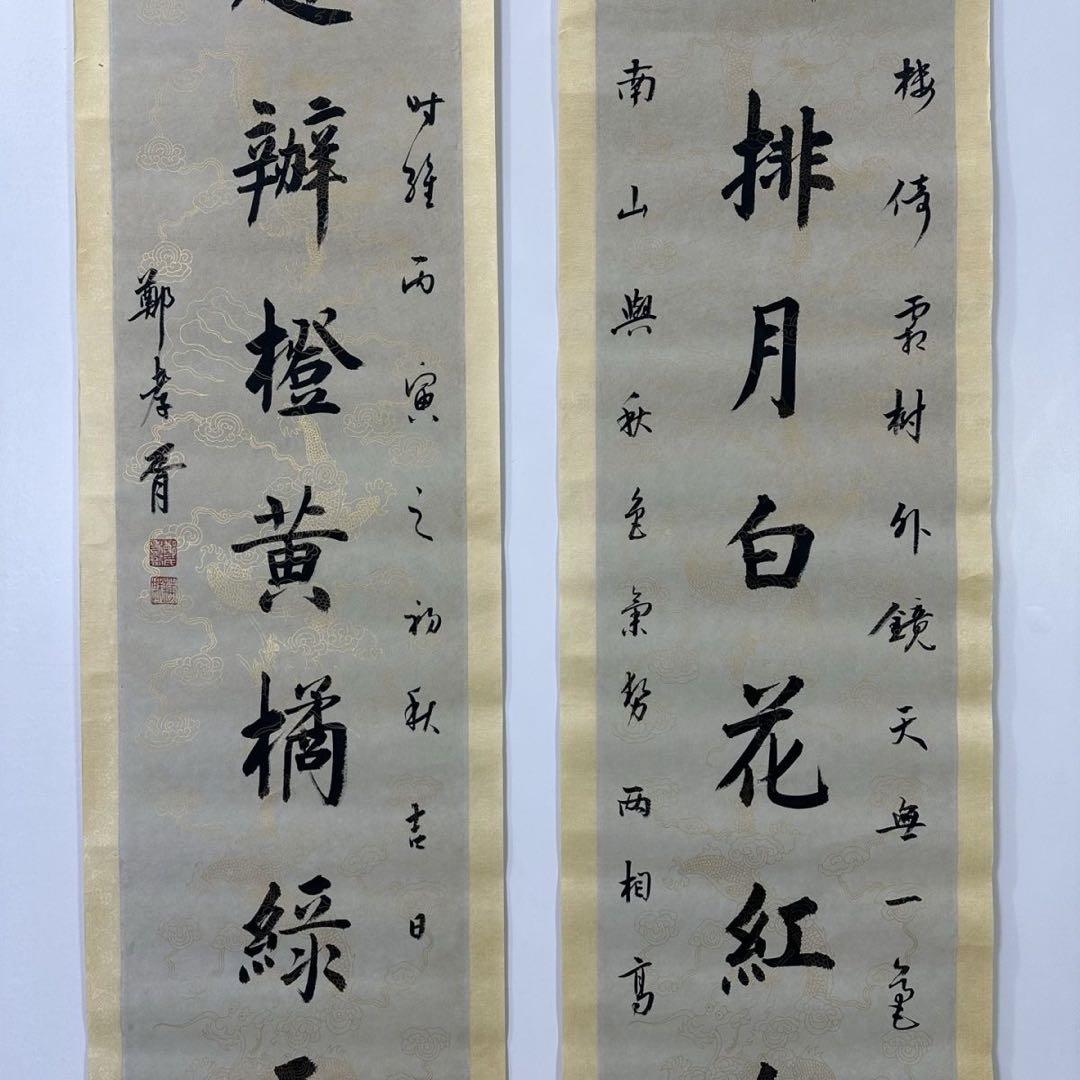 楼倚霜树外鏡天無一毫
排月白花紅
南山與秋色氣勢两相高
时維丙寅之初秋吉日
辦橙黄橘綠
鄭孝胥